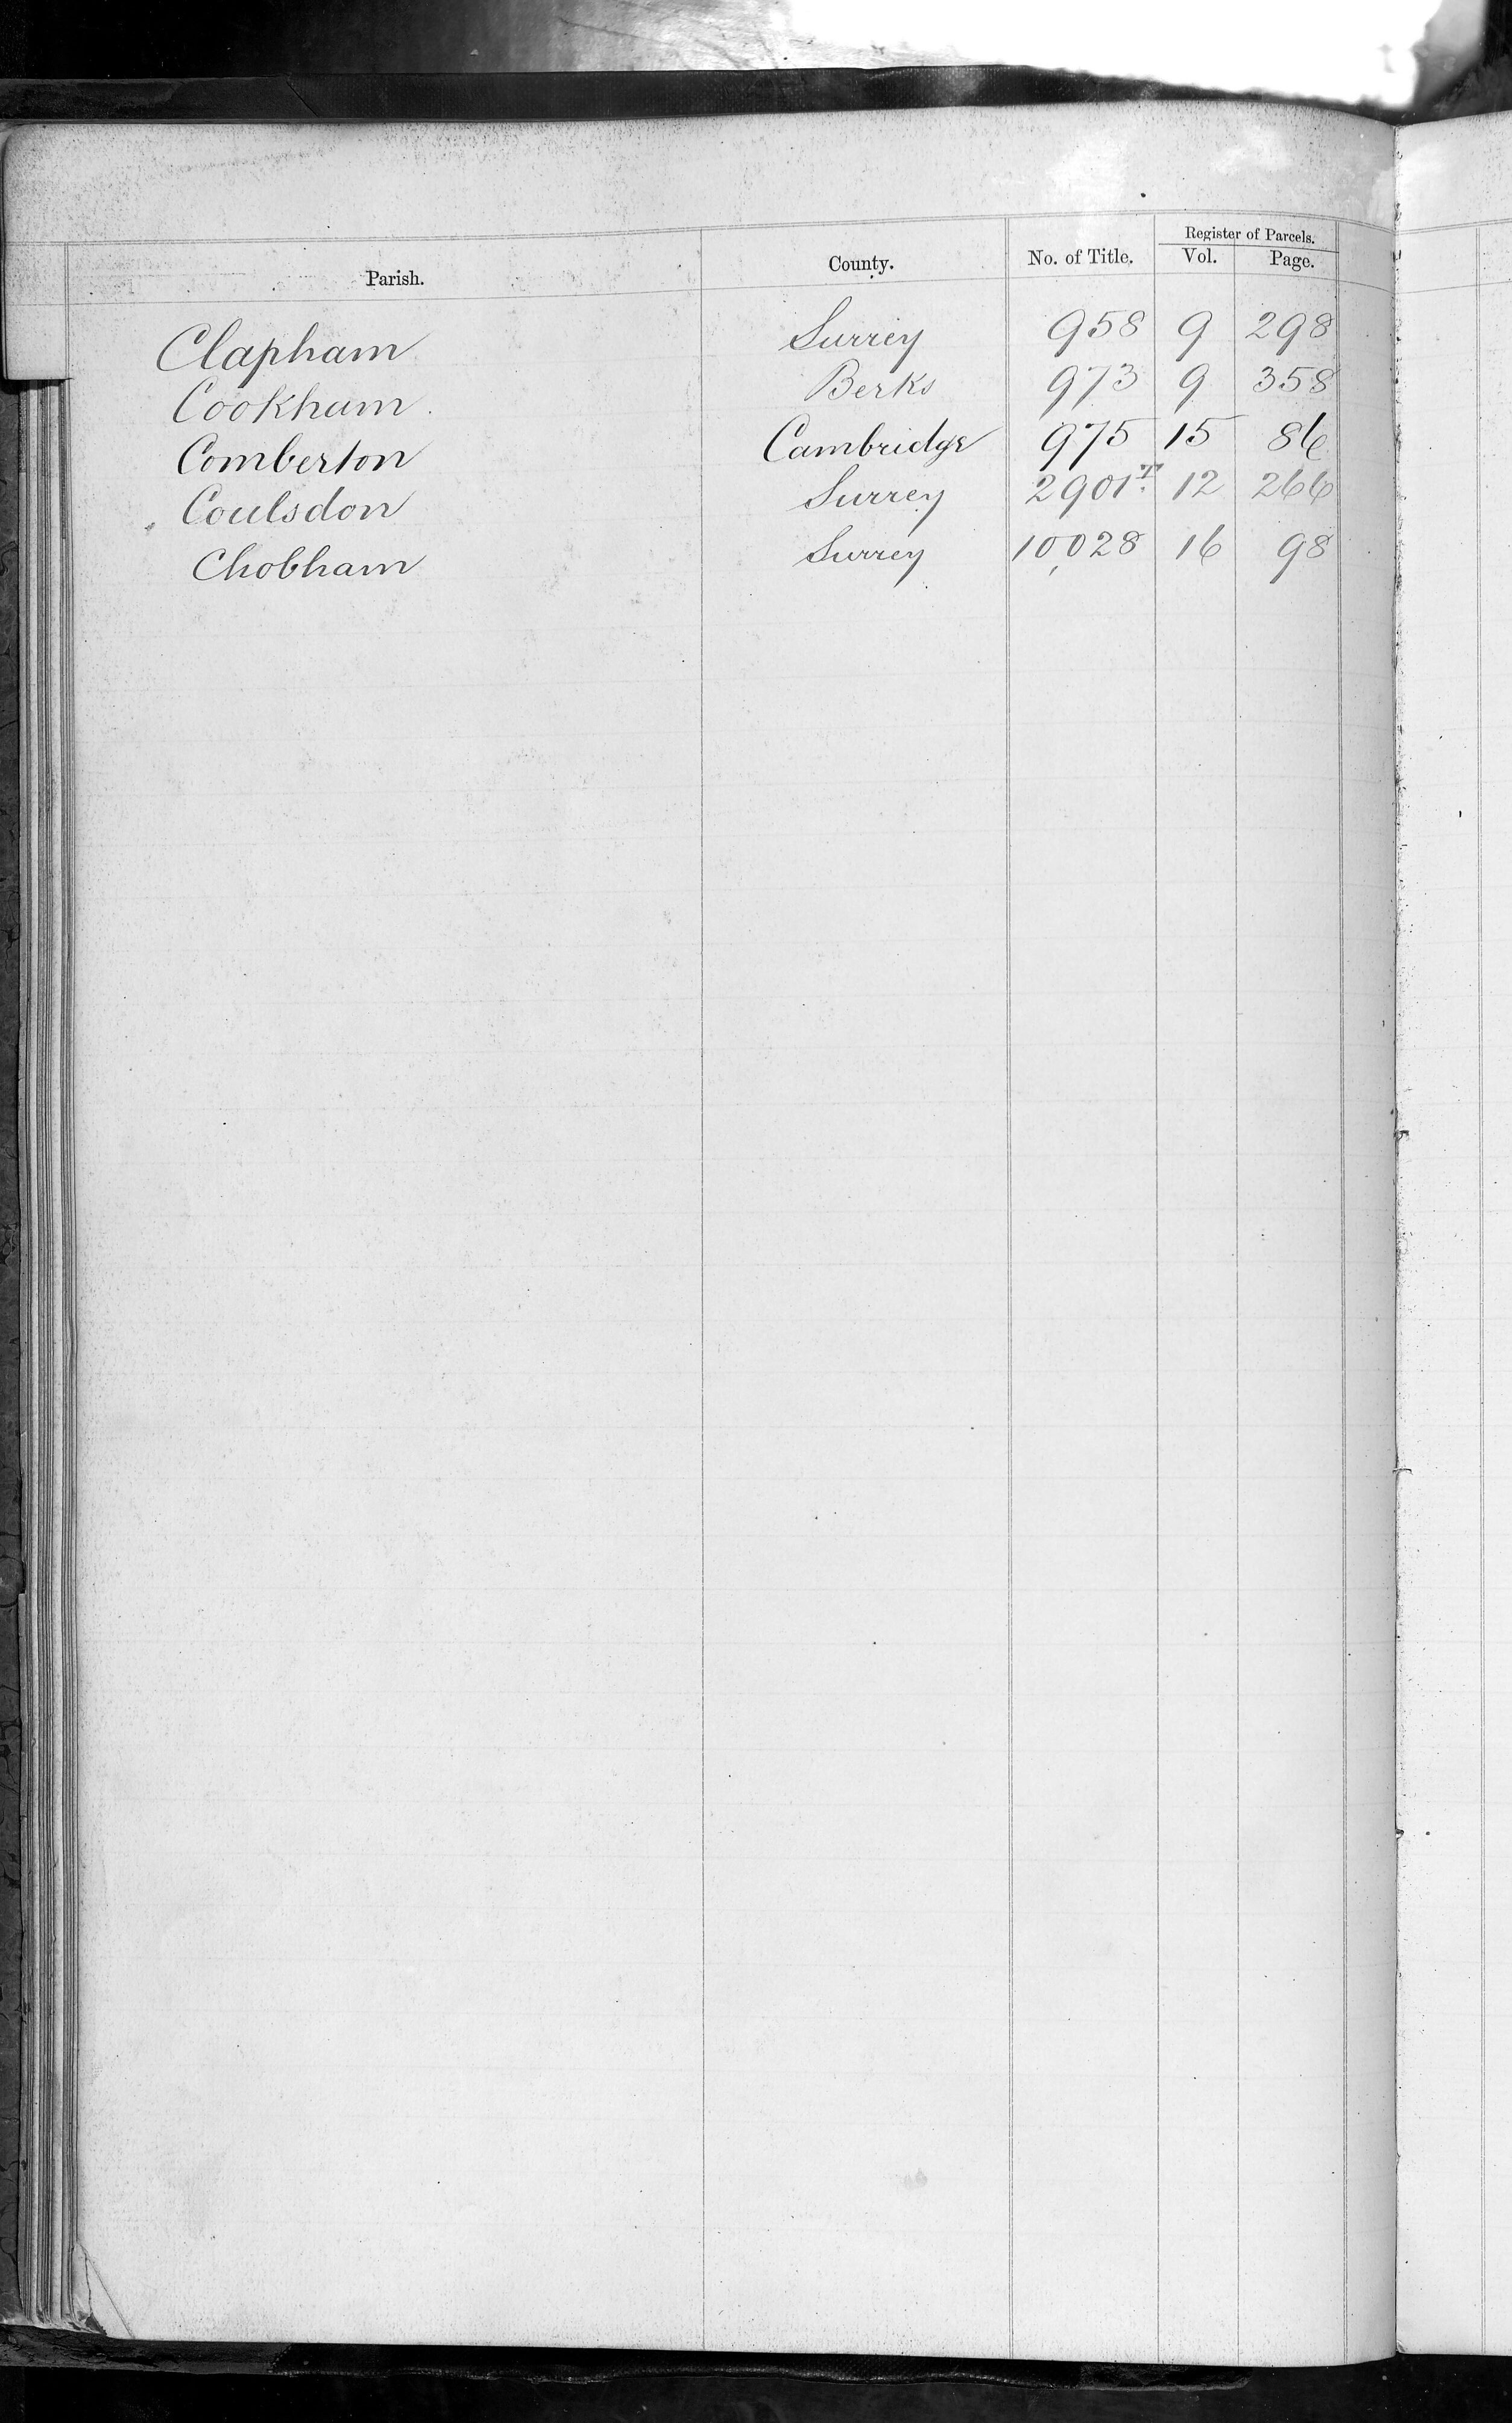 Parish. County. No. of Title. Register of Parcels. Vol. Page.
Clapham Surrey 958 9 298
Cookham Berks 973 9 358
Comberton Cambridge 975 15 86
Coulsdon Surrey 2901 T. 12 266
Chobham Surrey 10,028 16 98